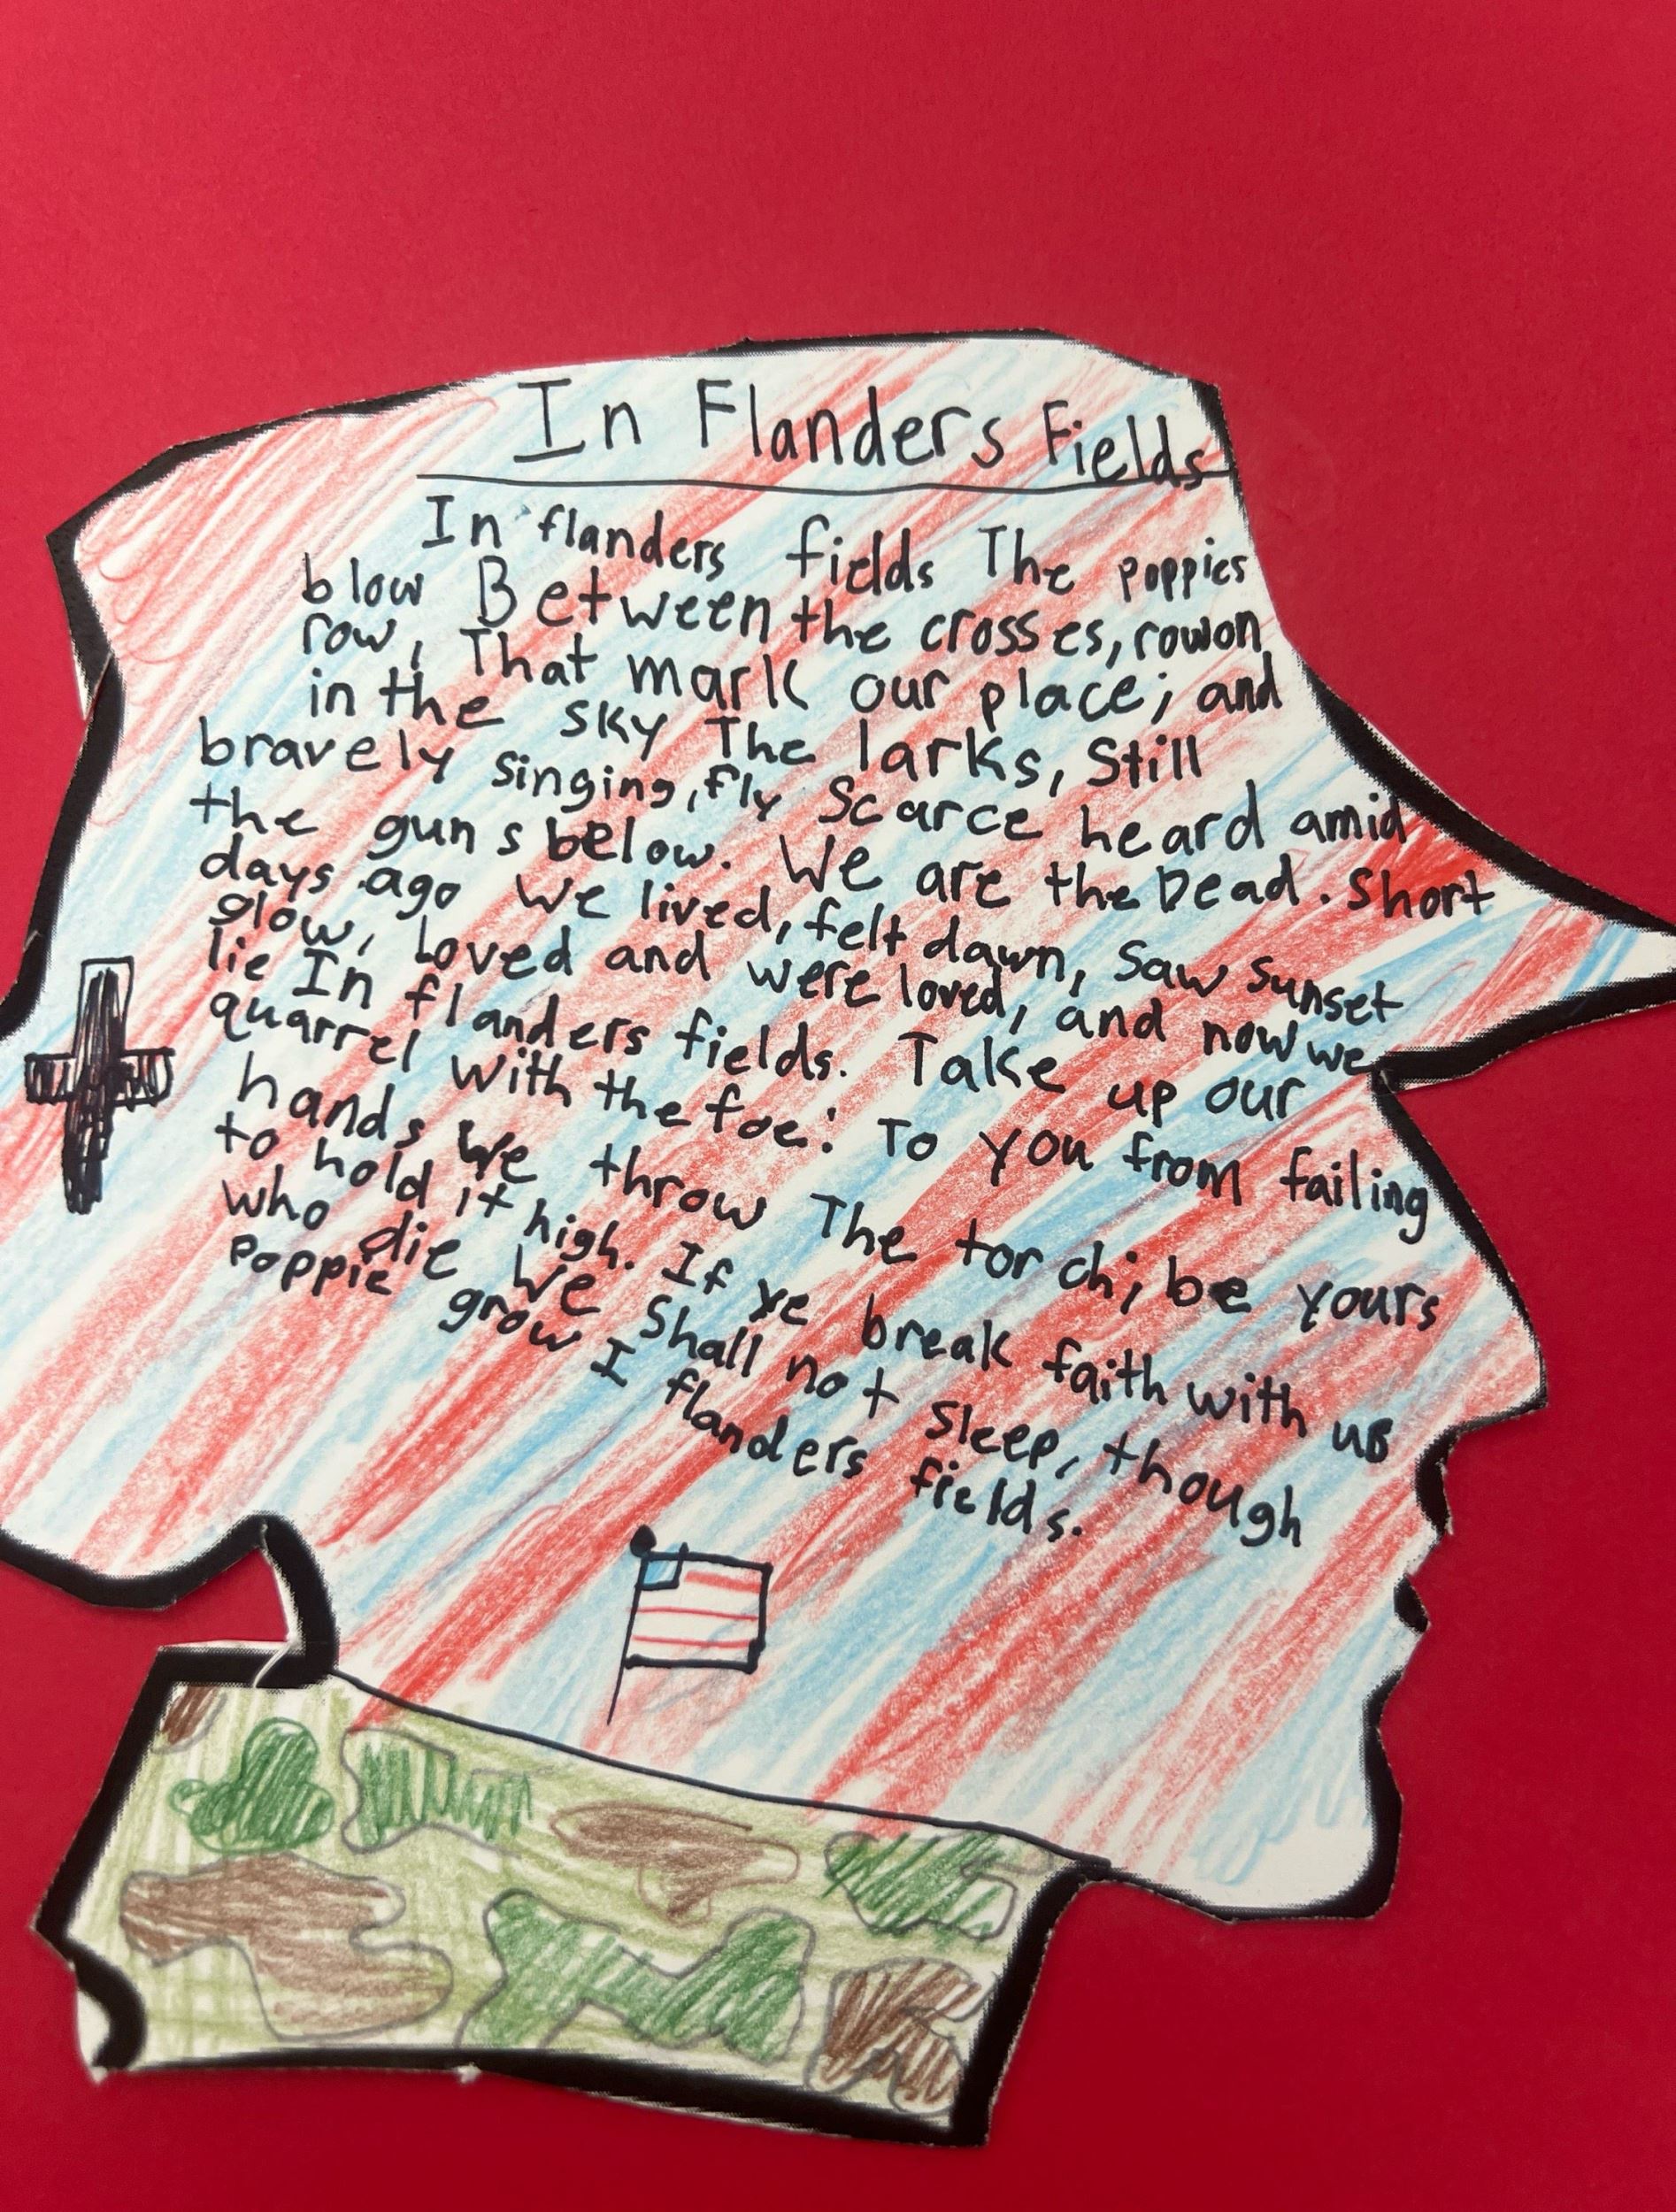 In Flanders Fields
In flanders fields The poppies
blow Between the crosses, row on
row, That mark our place; and
in the sky The larks, Still
bravely singing, fly Scarce heard amid
the guns below. We are the Dead. Short
days ago We lived, felt dawn, Saw sunset
glow, Loved and were loved, and now we
lie In flanders fields. Take up our
quarrel with the foe: To you from failing
hands We throw The torch; be yours
to hold it high. If ye break faith with us
who die We Shall not Sleep, though
Poppie grow I flanders fields.